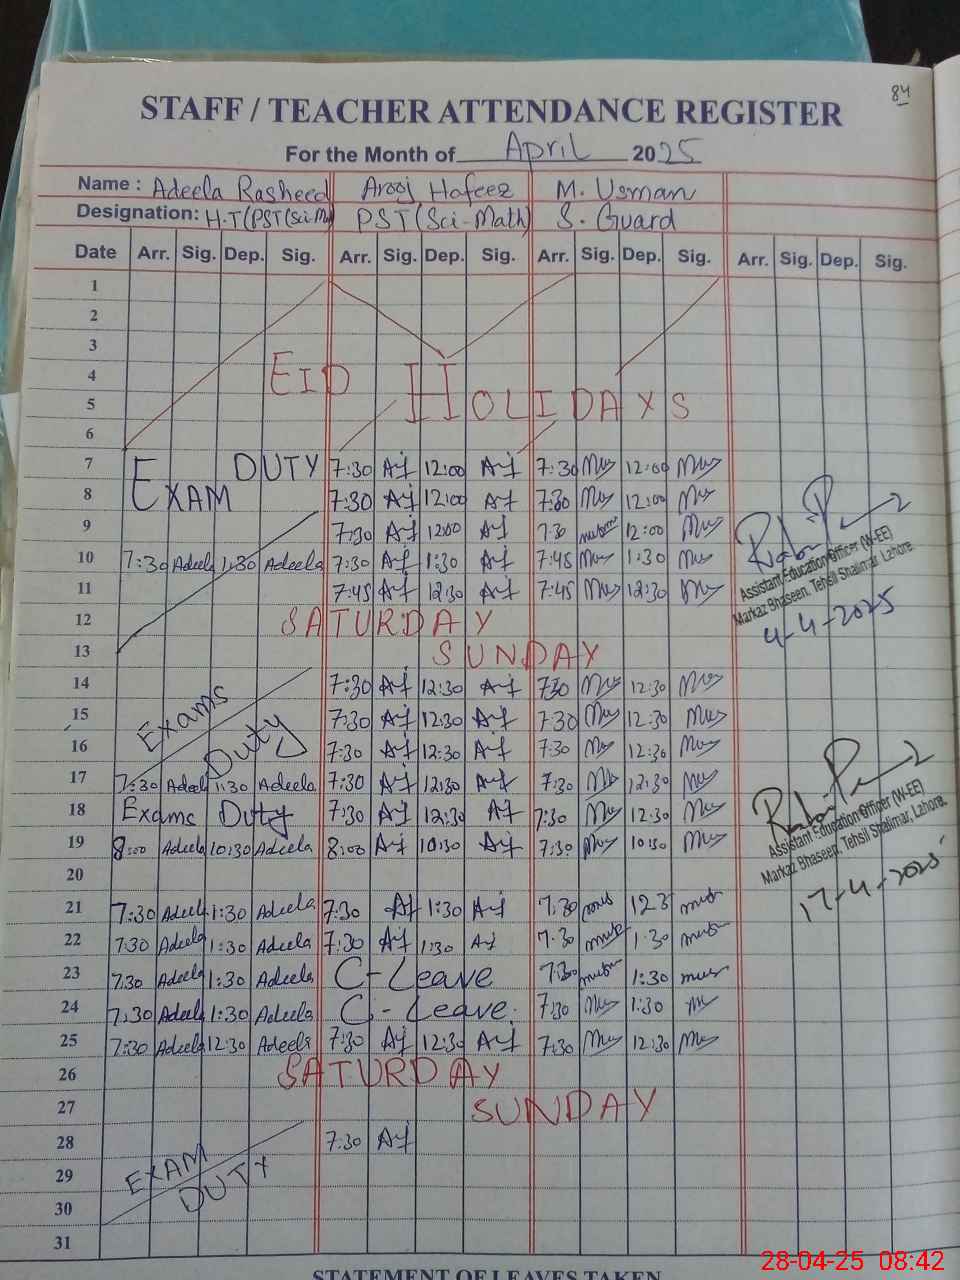 84
STAFF / TEACHER ATTENDANCE REGISTER
For the Month of April 2025
Name : Adeela Rasheed Arooj Hafeez M. Usman
Designation: H-T(PST(Sci-Ma) PST(Sci-Math) S. Guard
Date Arr. Sig. Dep. Sig. Arr. Sig. Dep. Sig. Arr. Sig. Dep. Sig. Arr. Sig. Dep. Sig.
1
2
3
4 EID HOLIDAYS
5
6
7 EXAM DUTY 7:30 12:00 7:30 12:00
8 7:30 12:00 7:30 12:00
9 7:30 12:00 7:30 12:00
10 7:30 Adeela 1:30 Adeela 7:30 1:30 7:45 1:30
11 7:45 12:30 7:45 12:30
Assistant Education Officer (W-EE)
Markaz Bhaseen, Tehsil Shalimar, Lahore.
4-4-2025
12 SATURDAY
13 SUNDAY
14 Exams Duty 7:30 12:30 7:30 12:30
15 7:30 12:30 7:30 12:30
16 7:30 12:30 7:30 12:30
17 7:30 Adeela 1:30 Adeela 7:30 12:30 7:30 12:30
18 Exams Duty 7:30 12:30 7:30 12:30
19 8:00 Adeela 10:30 Adeela 8:00 10:30 7:30 10:30
Assistant Education Officer (W-EE)
Markaz Bhaseen, Tehsil Shalimar, Lahore.
17-4-2025
20
21 7:30 Adeela 1:30 Adeela 7:30 1:30 7:30 123
22 7:30 Adeela 1:30 Adeela 7:30 1:30 7:30 1:30
23 7:30 Adeela 1:30 Adeela C-Leave 7:30 1:30
24 7:30 Adeela 1:30 Adeela C-Leave. 7:30 1:30
25 7:30 Adeela 12:30 Adeela 7:30 12:30 7:30 12:30
26 SATURDAY
27 SUNDAY
28 7:30
29 EXAM DUTY
30
31
STATEMENT OF LEAVES TAKEN
28-04-25 08:42